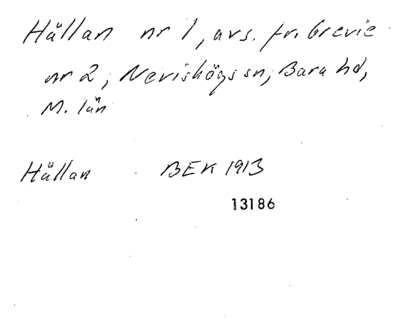 Hällan nr 1, avs. fr. Grevie
nr 2, Nevishögs sn, Bara hd,
M. län
Hällan BEK 1913
13186